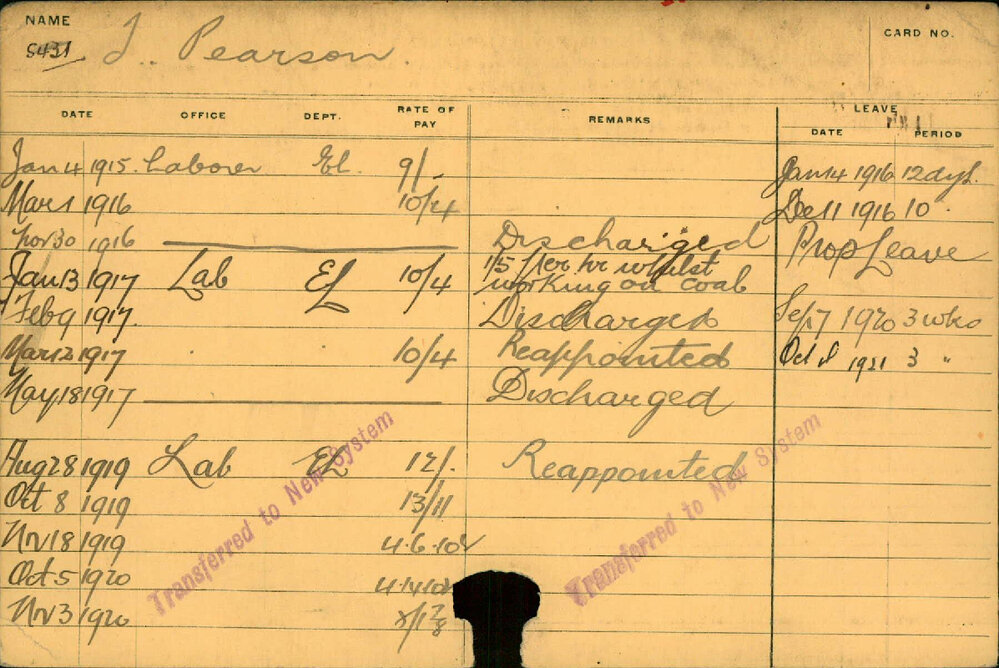 NAME
CARD NO.
5431 J.. Pearson.
DATE OFFICE DEPT. RATE OF PAY REMARKS LEAVE DATE PERIOD
Jan 4 1915. Laborer El. 9/-. Jan 14 1916 12 dys.
Mar 1 1916 10/4 Dec 11 1916 10.
Nov 30 1916 Discharged Prop Leave
Jan 13 1917 Lab EL 10/4 1/5 per hr whilst working on coal
Feb 9 1917. Discharged Sept 7 1920 3 wks
Mar 12 1917 10/4 Reappointed Oct 1921 3 "
May 18 1917 Discharged
Aug 28 1919 Lab EL 12/. Reappointed
Oct 8 1919 13/11
Nov 18 1919 4.6.10½
Oct 5 1920
Nov 3 1920
Transferred to New System
Transferred to New System